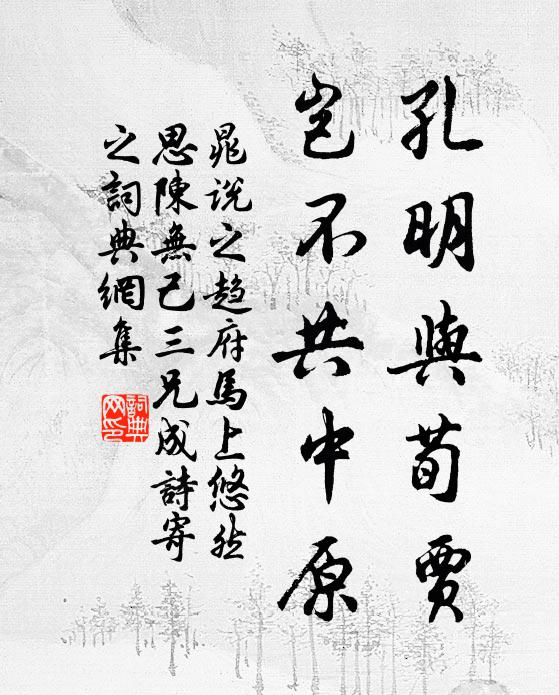 孔明與荀賈
豈不共中原
晁說之趨府馬上悠然
思陳無己三兄成詩寄
之詞典網集
詞典
网印